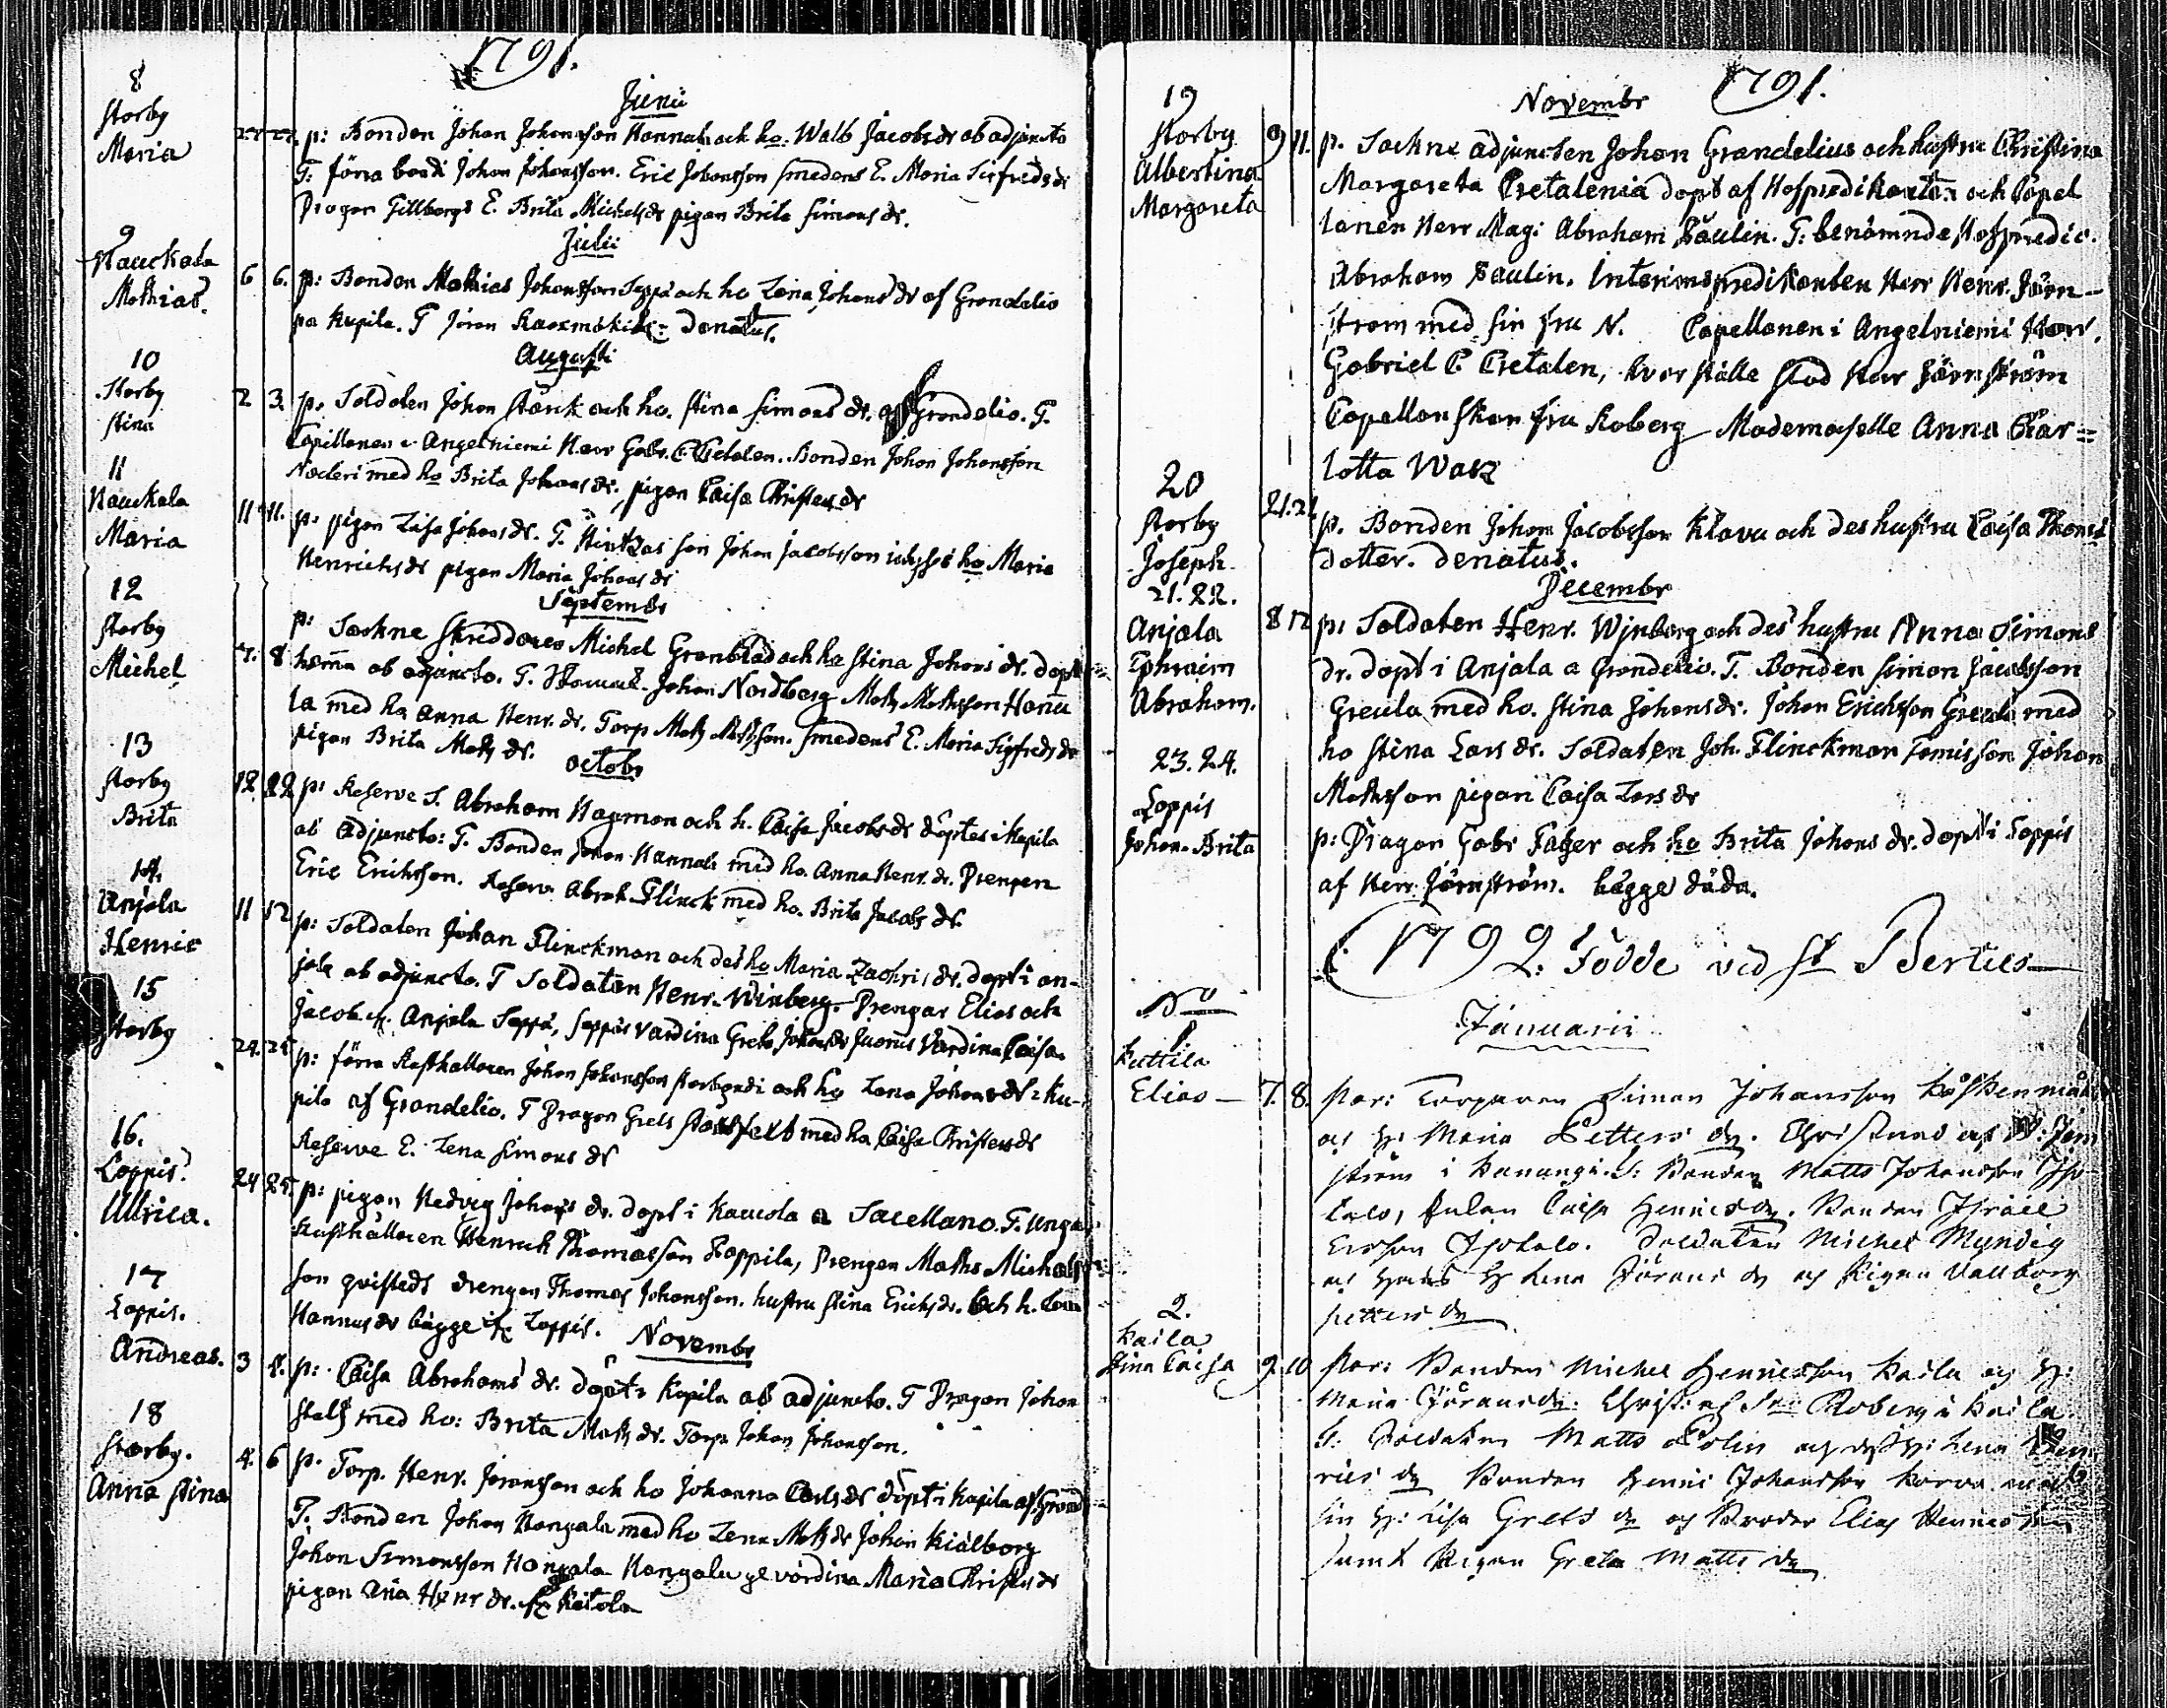 1791.
Junii
8
Storby
Maria
27 27. p: Bonden Johan Johansson Hannula och ho: Walb Jacobs dr ab adjuncto
T: förra bondi Johan Johansson. Eric Johansson smedens E. Maria Sigfreds dr
Dragon Gillbergs E. Brita Michels dr pigan Brita Simons dr.
Julii
9
Hauckala
Mathias.
6 6. p: Bonden Mathias Johansson Seppä och ho Lena Johans dr af Grandelio
pa Kupila. T Jöran denatus.
Augusti
10
Storby
Stina
2 3. p. Soldaten Johan Starck och ho. Stina Simons dr. af Grandelio. T.
Capellanen i Angelniemi Herr Gabr. C. Cretalen. Bonden Johan Johansson
med ho Brita Johans dr. pigan Caisa Christers dr
11
Hauckala
Maria
11 11. p. pigan Lisa Johans dr. T. son Johan Jacobsson ho Maria
Henrichs dr pigan Maria Johans dr
Septembr
12
Storby
Michel
7. 8 p: Sockne Skriddaren Michel Granblad och ho Stina Johans dr. döpt
hema ab adjuncto. T. Johan Nordberg Mats Matsson Hanu
la med ho Anna Henr. dr. Torp Mats Matsson. Smedens E. Maria Sigfreds dr
pigan Brita Mats dr.
octobr
13
Storby
Brita
12. 22 p: Reserve S. Abraham Hagman och h. Caisa Jacobs dr döptes i Kupila
ab Adjuncto: T. Bonden Johan Hannula med ho. Anna Henr. dr. Drengen
Eric Ericksson. Reserv. Abrah. Flinck med ho. Brita Jacobs dr.
14.
Anjala
Henric
11 12 p: Soldaten Johan Flinckman och des ho Maria Zachris dr. döpt i an-
jala ab adjuncto. T Soldaten Henr. Winberg. Drengar Elias och
Jacob fr. Anjala Seppä, Seppäs värdina Greta Johans dr värdina Caisa.
15
Storby
24. 25 p: förra Rusthållaren Johan Johansson och ho Lena Johans dr i Ku-
pila af Grandelio. T Dragon Grels med ho Caisa Christers dr
Reserve E. Lena Simons dr
16.
Loppis.
Ullrica.
24 25. p: pigan Hedvig Johans dr. döpt i Kauola a Sacellano. T. Unga
Rusthållaren Henrich Thomasson Roppila, Drengen Maths Michels
son qvistads drengen Thomas Johansson. hustru Stina Erichs dr. och h. Lena
Hannus dr bägge fr Loppis.
Novembr
17
Loppis.
Andreas.
3 4. p: Caisa Abrahams dr. döpt i Kupila ab adjuncto. T Dragon Johan
Stolt med ho: Brita Mats dr. Torp Johan Johansson.
18
Storby.
Anna Stina
4. 6 p. Torp. Henr. Joransson och ho Johanna Carls dr döpt i Kupila af Grand
T. Bonden Johan Hongala med ho Lena Mats dr Johan Kiälberg
Johan Simonsson Hongala Hongala ge värdina Maria Christers dr
pigan Ana Henr dr. fr Ketola
1791.
Novembr
19
Storby
Albertina
Margareta
9 11. p. Sockne adjuncten Johan Grandelius och hustru Christina
Margareta Cretalenia döpt af Hofpredikanten och Capel
lanen Herr Mag: Abraham Paulin. T: benämnde Hofpredic.
Abraham Paulin. Interimspredikanten Herr Henr. Järn-
ström med sin fru N. Capellanen i Angelniemi Herr.
Gabriel C. Cretalen, hvar ställe stod Herr Järnström
Capellanskan fru Roberg Mademoselle Anna Char=
lotta Watz
20
Storby
Joseph
21. 21 p. Bonden Johan Jacobsson Klavu och des hustru Caisa Thoms
dotter. denatus.
Decembr
21. 22.
Anjala
Ephraim
Abraham.
8 12 p: Soldaten Henr. Winberg och des hustru Anna Simons
dr. döpt i Anjala a Grandelio. T. Bonden Simon Jacobsson
Greula med ho. Stina Johans dr. Johan Ericksson Greula med
ho Stina Lars dr. Soldaten Joh. Flinckman Tomisson Johan
Mathsson pigan Caisa Lars dr
23. 24.
Loppis
Johan. Brita
p: Dragon Gabr Fager och ho Brita Johans dr. döpt i Loppis
af Herr Järnström. bägge döda.
1792. Födde vid St Bertils
No
Januarii
1
Kuttila
Elias
7. 8. par: Torparen Simon Johansson
och h: Maria Petters dr. Christnad af H: Järn
ström i T: Bonden Matts Johansson Iso
talo, Caisa Henrics dr. Bonden Israel
Ersson Isotalo. Soldaten Michel Myndig
och hans h Lena Jörans dr och Pigan Vallborg
petters dr
2.
Kaila
Stina Caisa
9. 10 par: Bonden Michel Henricsson Kaila och h:
Maria Jörans dr. Christ: af Roberg i Kaila.
T: Soldaten Matts Polin och dess h: Lena Hen
rics dr Bonden Henric Johansson med
sin h: Lisa Grels dr och Broder Elias Henricsson
samt Pigan Greta Matts dr